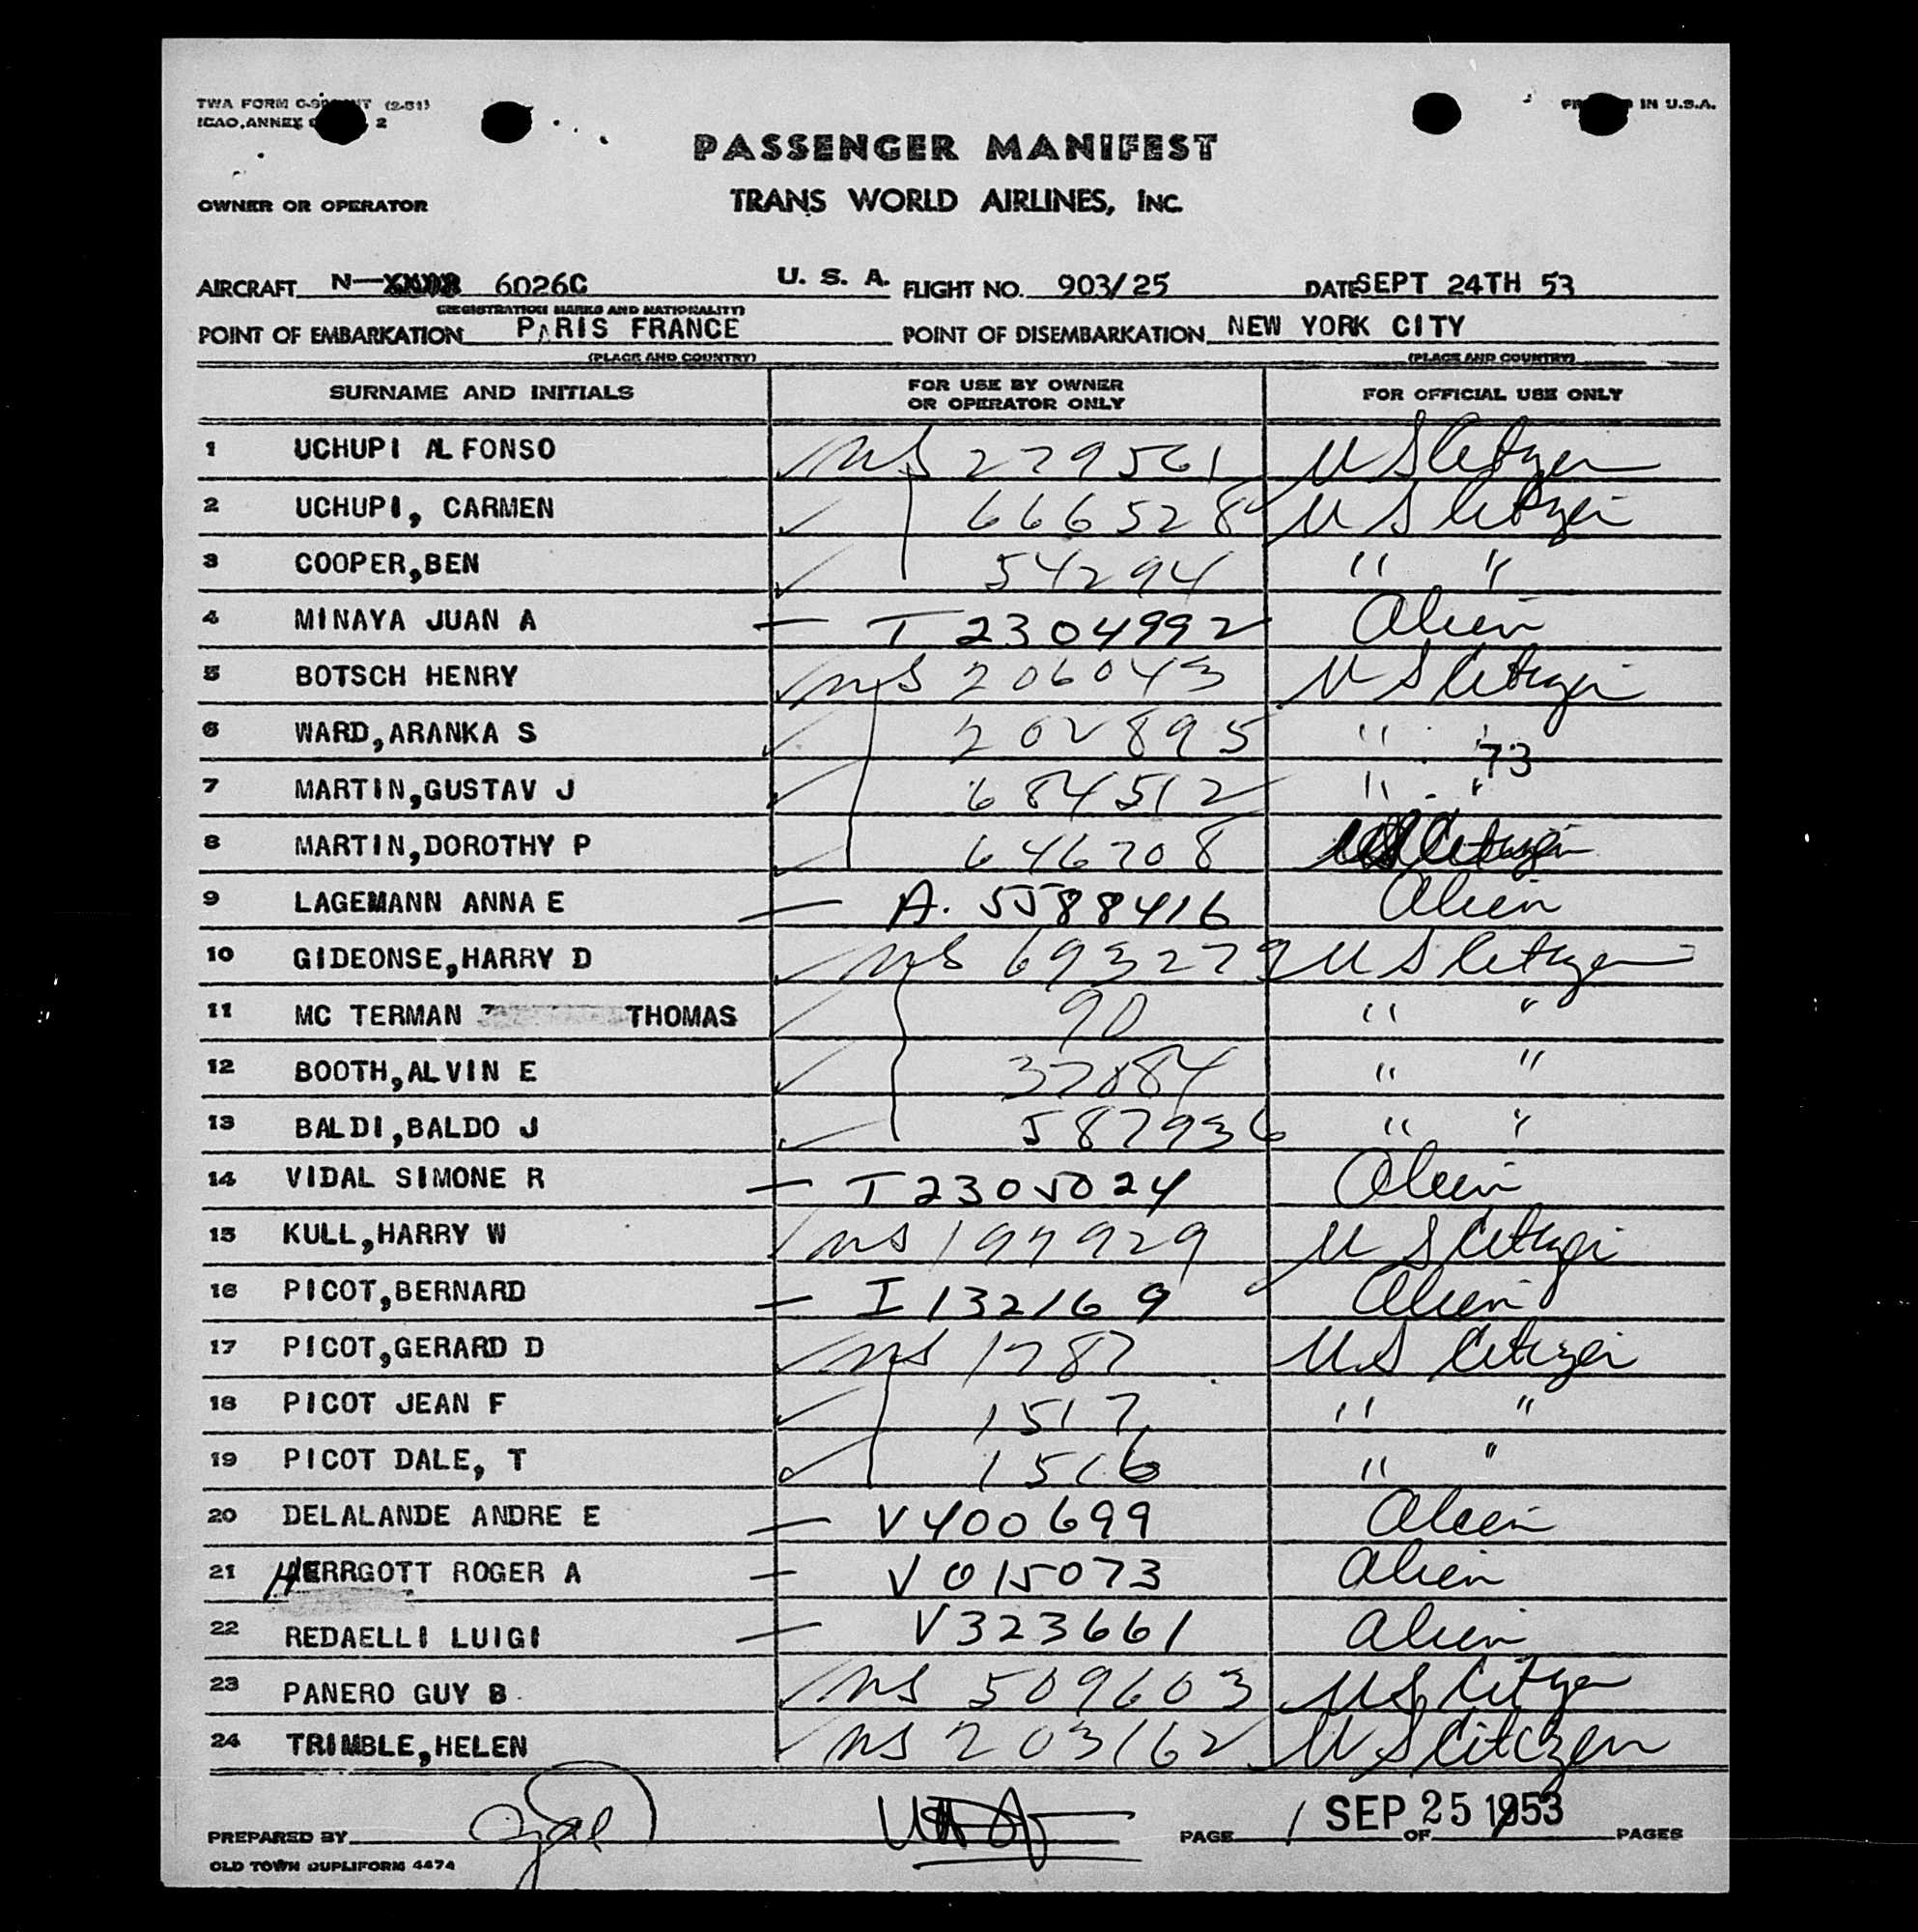 TWA FORM (2-51) PRINTED IN U.S.A.
ICAO, ANNEX 2
PASSENGER MANIFEST
OWNER OR OPERATOR TRANS WORLD AIRLINES, INC.
AIRCRAFT N— 6026C U. S. A. FLIGHT NO. 903/25 DATE SEPT 24TH 53
(REGISTRATION MARKS AND NATIONALITY)
POINT OF EMBARKATION PARIS FRANCE POINT OF DISEMBARKATION NEW YORK CITY
(PLACE AND COUNTRY) (PLACE AND COUNTRY)
SURNAME AND INITIALS FOR USE BY OWNER OR OPERATOR ONLY FOR OFFICIAL USE ONLY
1 UCHUPI ALFONSO NS 279561 U S Citizen
2 UCHUPI, CARMEN 666528 U S Citizen
3 COOPER,BEN 54294 " "
4 MINAYA JUAN A — T 2304992 Alien
5 BOTSCH HENRY NS 206043 U S Citizen
6 WARD,ARANKA S 202895 " "
73
7 MARTIN,GUSTAV J 684512 " "
8 MARTIN,DOROTHY P 646708 US Citizen
9 LAGEMANN ANNA E — A. 5588416 Alien
10 GIDEONSE,HARRY D NS 693279 U S Citizen
11 MC TERMAN THOMAS 90 " "
12 BOOTH,ALVIN E 37084 " "
13 BALDI,BALDO J 587936 " "
14 VIDAL SIMONE R — T 2305024 Alien
15 KULL,HARRY W NS 197929 U S Citizen
16 PICOT,BERNARD — I 132169 Alien
17 PICOT,GERARD D NS 1787 U.S Citizen
18 PICOT JEAN F 1517 " "
19 PICOT DALE, T 1516 " "
20 DELALANDE ANDRE E — V400699 Alien
21 HERRGOTT ROGER A — V 015073 Alien
22 REDAELLI LUIGI — V323661 Alien
23 PANERO GUY B. NS 509603 US Citizen
24 TRIMBLE,HELEN NS 203162 U S Citizen
SEP 25 1953
PREPARED BY PAGE 1 OF PAGES
OLD TOWN DUPLIFORM 4474